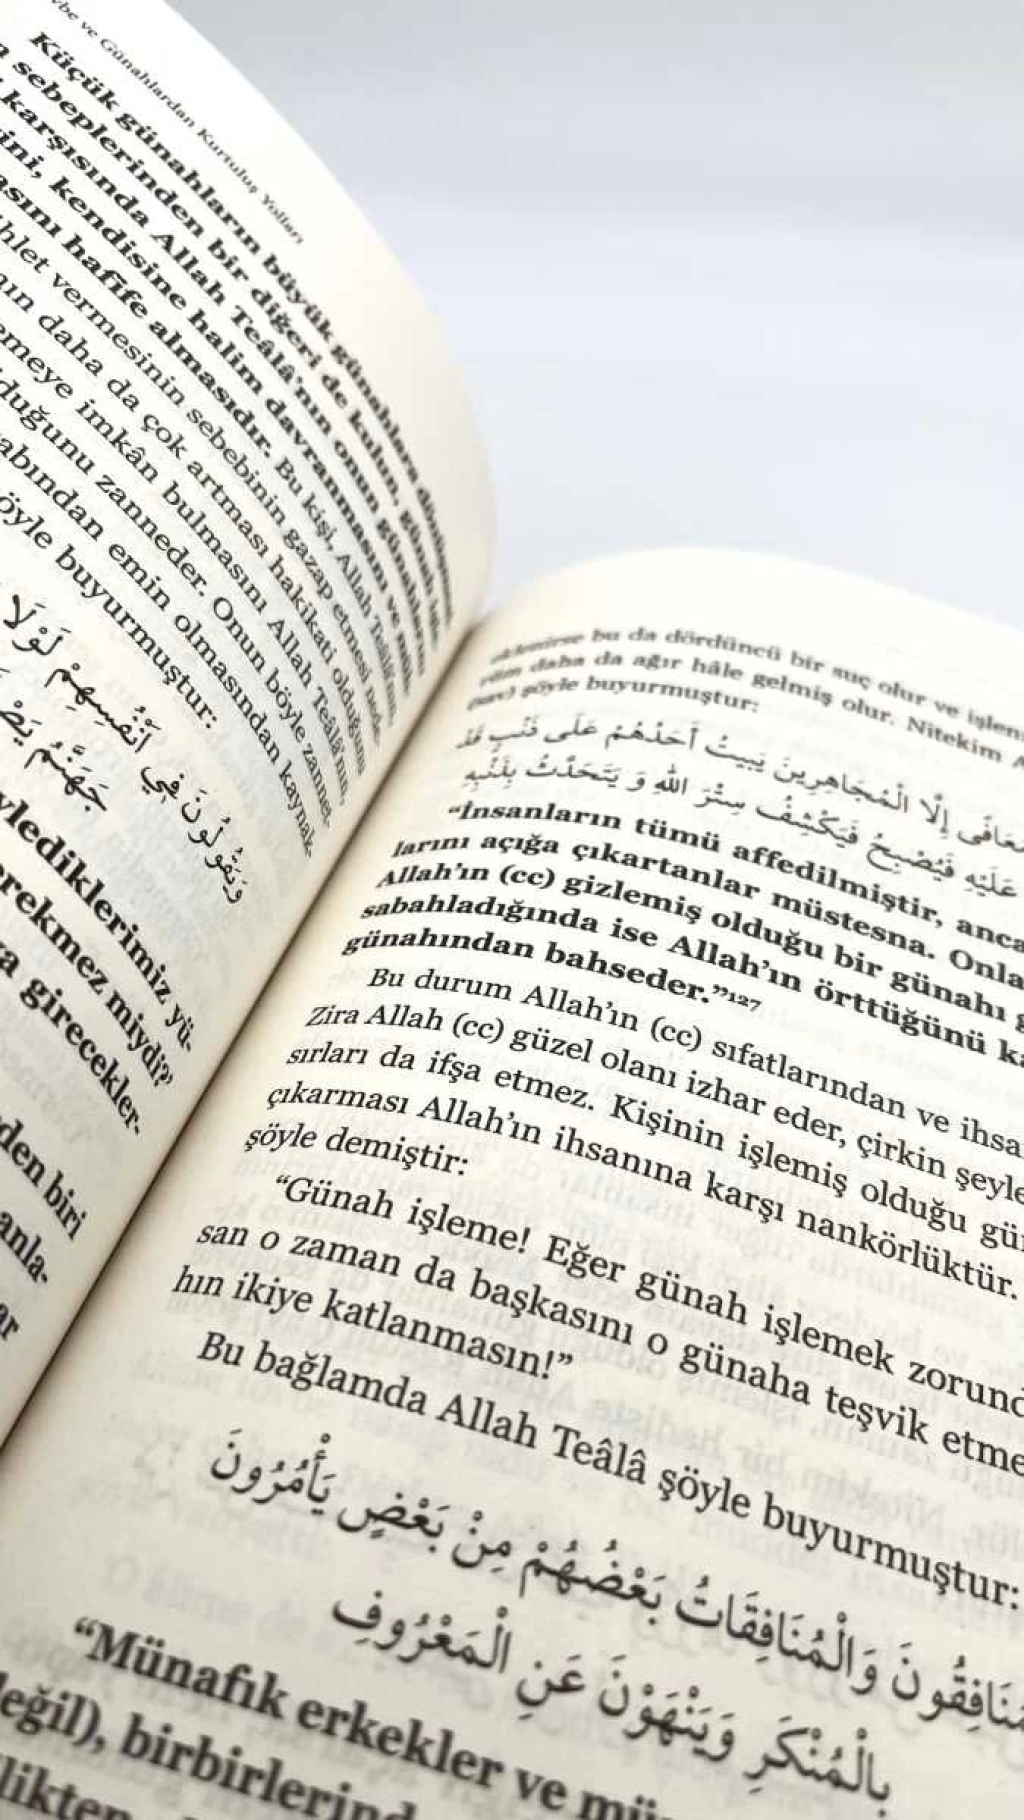 be ve Günahlardan Kurtuluş Yolları
Küçük günahların büyük günahlara dönüşme
sebeplerinden bir diğeri de kulun, günah işle
karşısında Allah Teâlâ'nın onun günahlarını
ini, kendisine halim davranmasını ve
asını hafife almasıdır. Bu kişi, Allah Teâlâ'nın
hlet vermesinin sebebinin gazap etmesi
nın daha da çok artması hakikati olduğunu
emeye imkân bulmasını Allah Teâlâ'nın,
duğunu zanneder. Onun böyle zannet-
abından emin olmasından kaynak-
öyle buyurmuştur:
وَيَقُولُونَ فِي أَنْفُسِهِمْ لَوْلَا
جَهَنَّمُ يَصْ
ylediklerimiz yü-
erekmez miydi?'
a girecekler-
den biri
anla-
ar
eklenirse bu da dördüncü bir suç olur ve işlen
daha da ağır hâle gelmiş olur. Nitekim A
(sav) şöyle buyurmuştur:
مُعَافًى إِلَّا الْمُجَاهِرِينَ يَبِيتُ أَحَدُهُمْ عَلَى ذَنْبٍ قَدْ
عَلَيْهِ فَيُصْبِحُ فَيَكْشِفُ سِتْرَ اللهِ وَ يَتَحَدَّثُ بِذَنْبِهِ
“İnsanların tümü affedilmiştir, anca
larını açığa çıkartanlar müstesna. Onla
Allah'ın (cc) gizlemiş olduğu bir günahı g
sabahladığında ise Allah'ın örttüğünü ka
günahından bahseder.”¹²⁷
Bu durum Allah'ın (cc) sıfatlarından ve ihsa
Zira Allah (cc) güzel olanı izhar eder, çirkin şeyle
sırları da ifşa etmez. Kişinin işlemiş olduğu gü
çıkarması Allah'ın ihsanına karşı nankörlüktür.
şöyle demiştir:
“Günah işleme! Eğer günah işlemek zorund
san o zaman da başkasını o günaha teşvik etme
hın ikiye katlanmasın!”
Bu bağlamda Allah Teâlâ şöyle buyurmuştur:
مُنَافِقُونَ وَالْمُنَافِقَاتُ بَعْضُهُمْ مِنْ بَعْضٍ يَأْمُرُونَ
بِالْمُنْكَرِ وَيَنْهَوْنَ عَنِ الْمَعْرُوفِ
“Münafık erkekler ve mü
değil), birbirlerind
likten